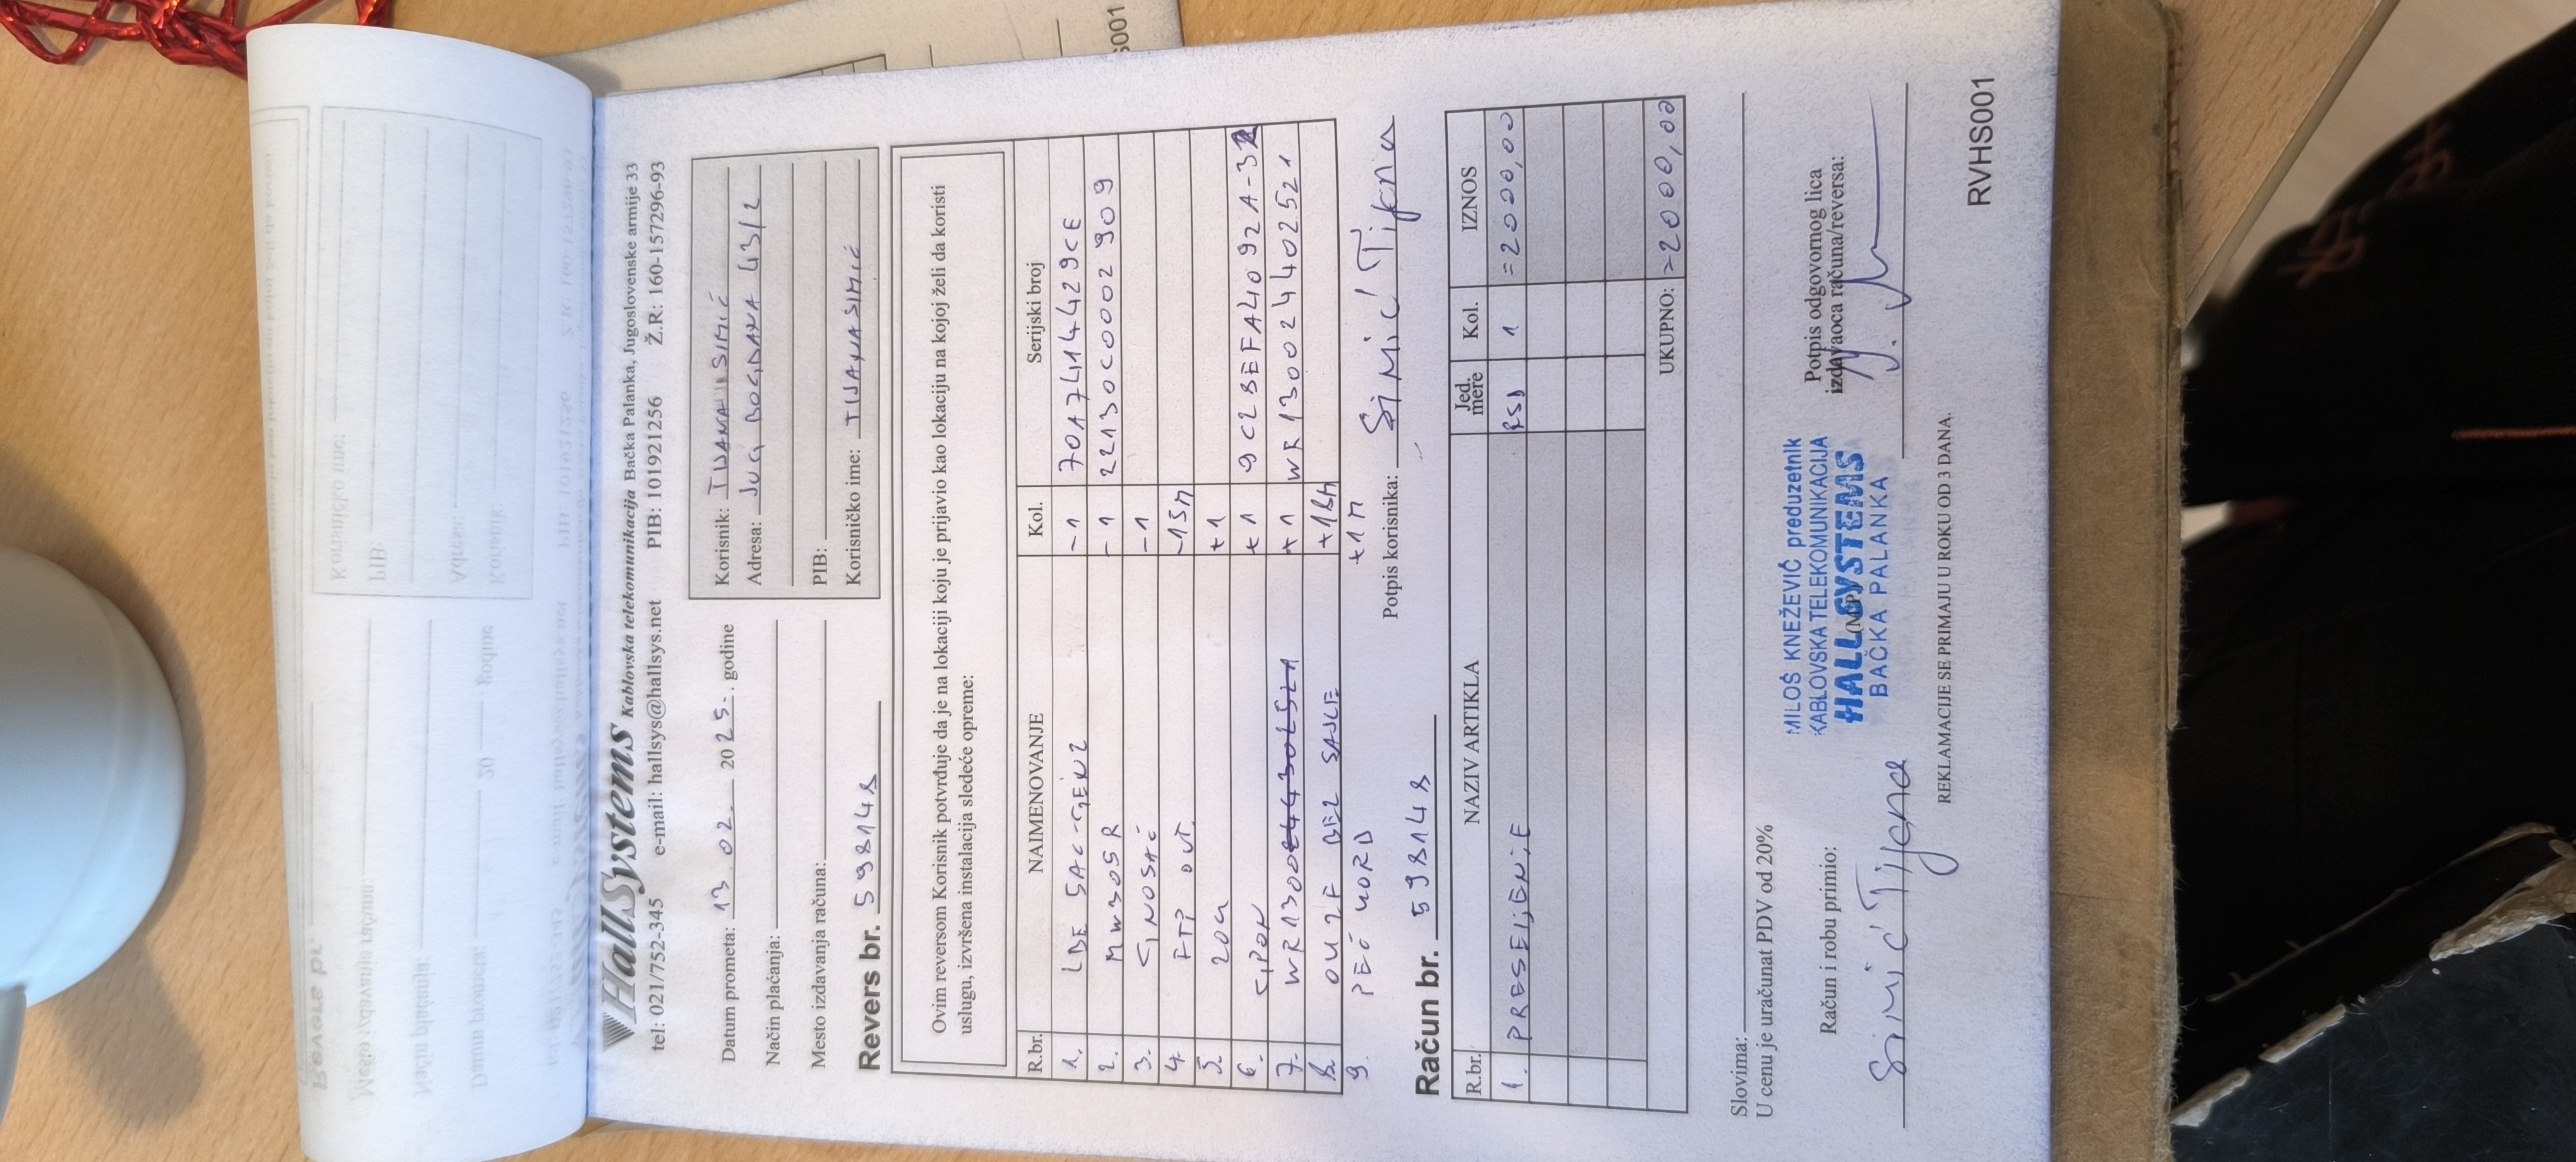 HallSystems Kablovska telekomunikacija Bačka Palanka, Jugoslovenske armije 33
tel: 021/752-345 e-mail: hallsys@hallsys.net PIB: 101921256 Ž.R: 160-157296-93
Datum prometa: 13.02. 2025. godine
Način plaćanja:
Mesto izdavanja računa:
Korisnik: TIJANA SIMIĆ
Adresa: JUG BOGDANA 43/2
PIB:
Korisničko ime: TIJANASIMIĆ
Revers br. 598148
Ovim reversom Korisnik potvrđuje da je na lokaciji koju je prijavio kao lokaciju na kojoj želi da koristi
uslugu, izvršena instalacija sledeće opreme:
R.br. NAIMENOVANJE Kol. Serijski broj
1. LBE 5AC-GEN2 -1 70A7414429CE
2. MW305R -1 22130C00002909
3. -1
4. FTP OUT. -15M
5. +1
6. GPON +1
7. WR1300 +1 WR130024402521
8. +18M
9. +1M
Potpis korisnika: Simić Tijana
Račun br. 598148
R.br. NAZIV ARTIKLA Jed. mere Kol. IZNOS
1. PRESELJENJE RSD 1 =2000,00
UKUPNO: =2000,00
Slovima:
U cenu je uračunat PDV od 20%
Račun i robu primio:
Simić Tijana
MILOŠ KNEŽEVIĆ preduzetnik
KABLOVSKA TELEKOMUNIKACIJA
HALL SYSTEMS
BAČKA PALANKA
(M.P.)
Potpis odgovornog lica
izdavaoca računa/reversa:
REKLAMACIJE SE PRIMAJU U ROKU OD 3 DANA.
RVHS001
S001